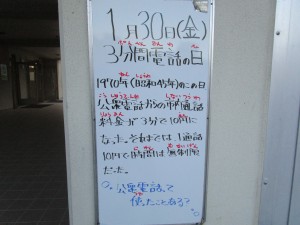 1月30日(金)
3分間電話の日
1970年(昭和45年)のこの日
公衆電話からの市内通話
料金が3分で10円に
なった。それまでは、1通話
10円で時間は無制限
だった。
公衆電話って
使ったことある?